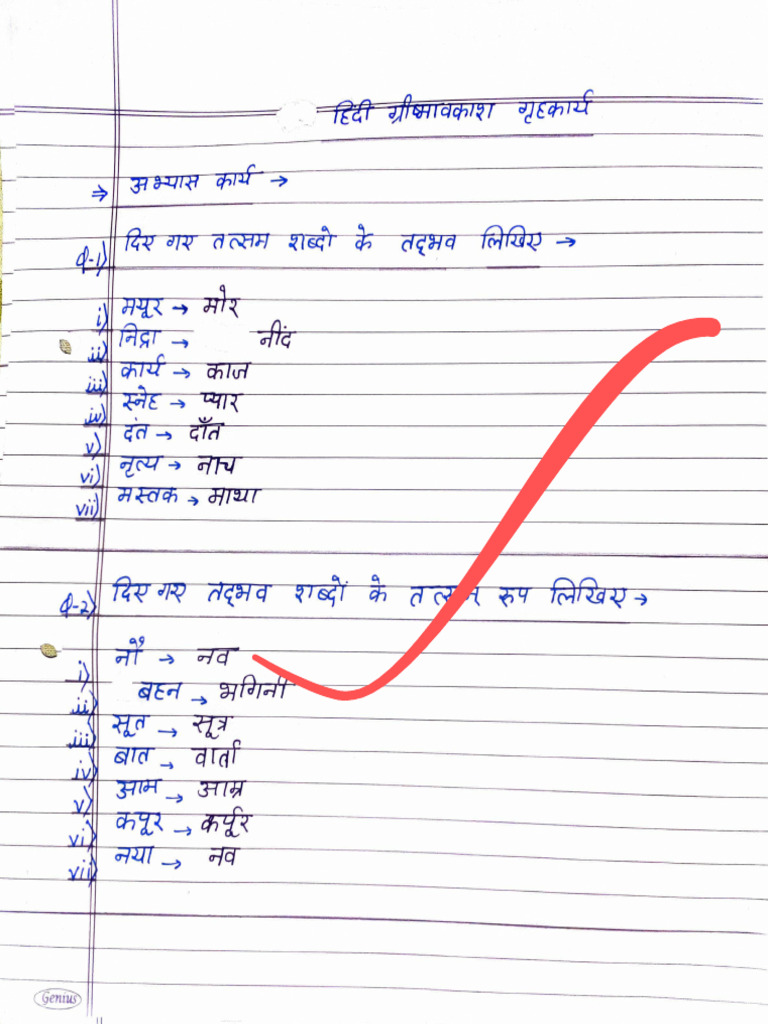 हिंदी ग्रीष्मावकाश गृहकार्य
⇒ अभ्यास कार्य →
Q-1) दिए गए तत्सम शब्दो के तद्भव लिखिए →
i) मयूर → मोर
ii) निद्रा → नींद
iii) कार्य → काज
iv) स्नेह → प्यार
v) दंत → दाँत
vi) नृत्य → नाच
vii) मस्तक → माथा
Q-2) दिए गए तद्भव शब्दों के तत्सम् रुप लिखिए →
i) नौ → नव
ii) बहन → भगिनी
iii) सूत → सूत्र
iv) बात → वार्ता
v) आम → आम्र
vi) कपूर → कर्पूर
vii) नया → नव
Genius